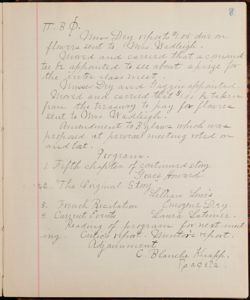 8
Π. Β. Φ.
Miss Dey report $2.00 due on
flowers sent to Mrs. Wadleigh.
Moved and carried that a committee
be appointed to see about a prize for
the inter class meet.
Misses Dey and appointed
Moved and carried that $2.00 be taken
from the treasury to pay for flowers
sent to Mrs. Wadleigh.
Amendment to Bylaws which was
prepared at special meeting voted on
and lost.
Program.
1. Fifth chapter of continued story
Grace Award
2. The Original Story
Lillian Lewis
3. French Recitation Imogene Dey
4. Current Events Laura Latimer.
Reading of program for next meet
ing. Critics report. Directors report.
Adjournment
C. Blanche Knapp.